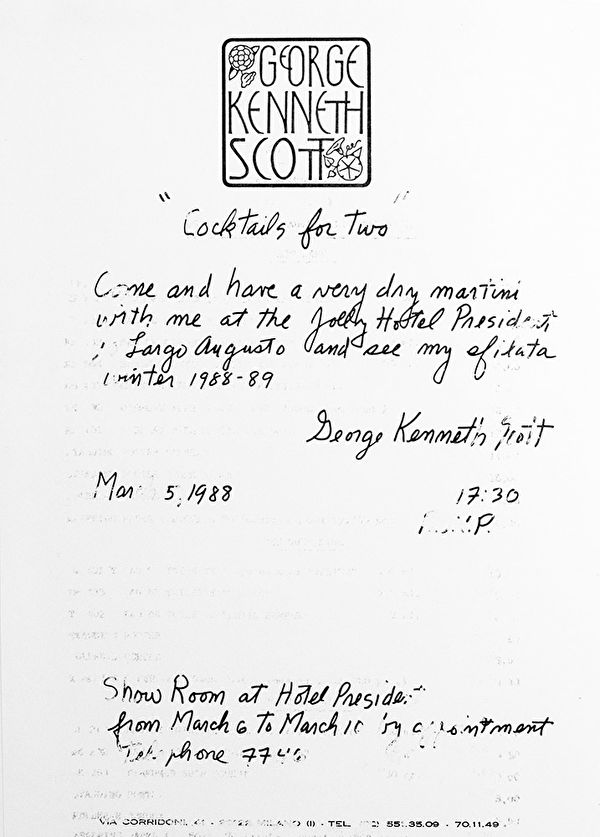 GEORGE
KENNETH
SCOTT
"Cocktails for Two"
Come and have a very dry martini
with me at the Jolly Hotel President
Largo Augusto and see my sfilata
winter 1988-89
George Kenneth Scott
March 5, 1988
17:30
Show Room at Hotel President
from March 6 to March 10 by appointment
Telephone 7746
VIA CORRIDONI, MILANO (I) - TEL. - 70.11.49